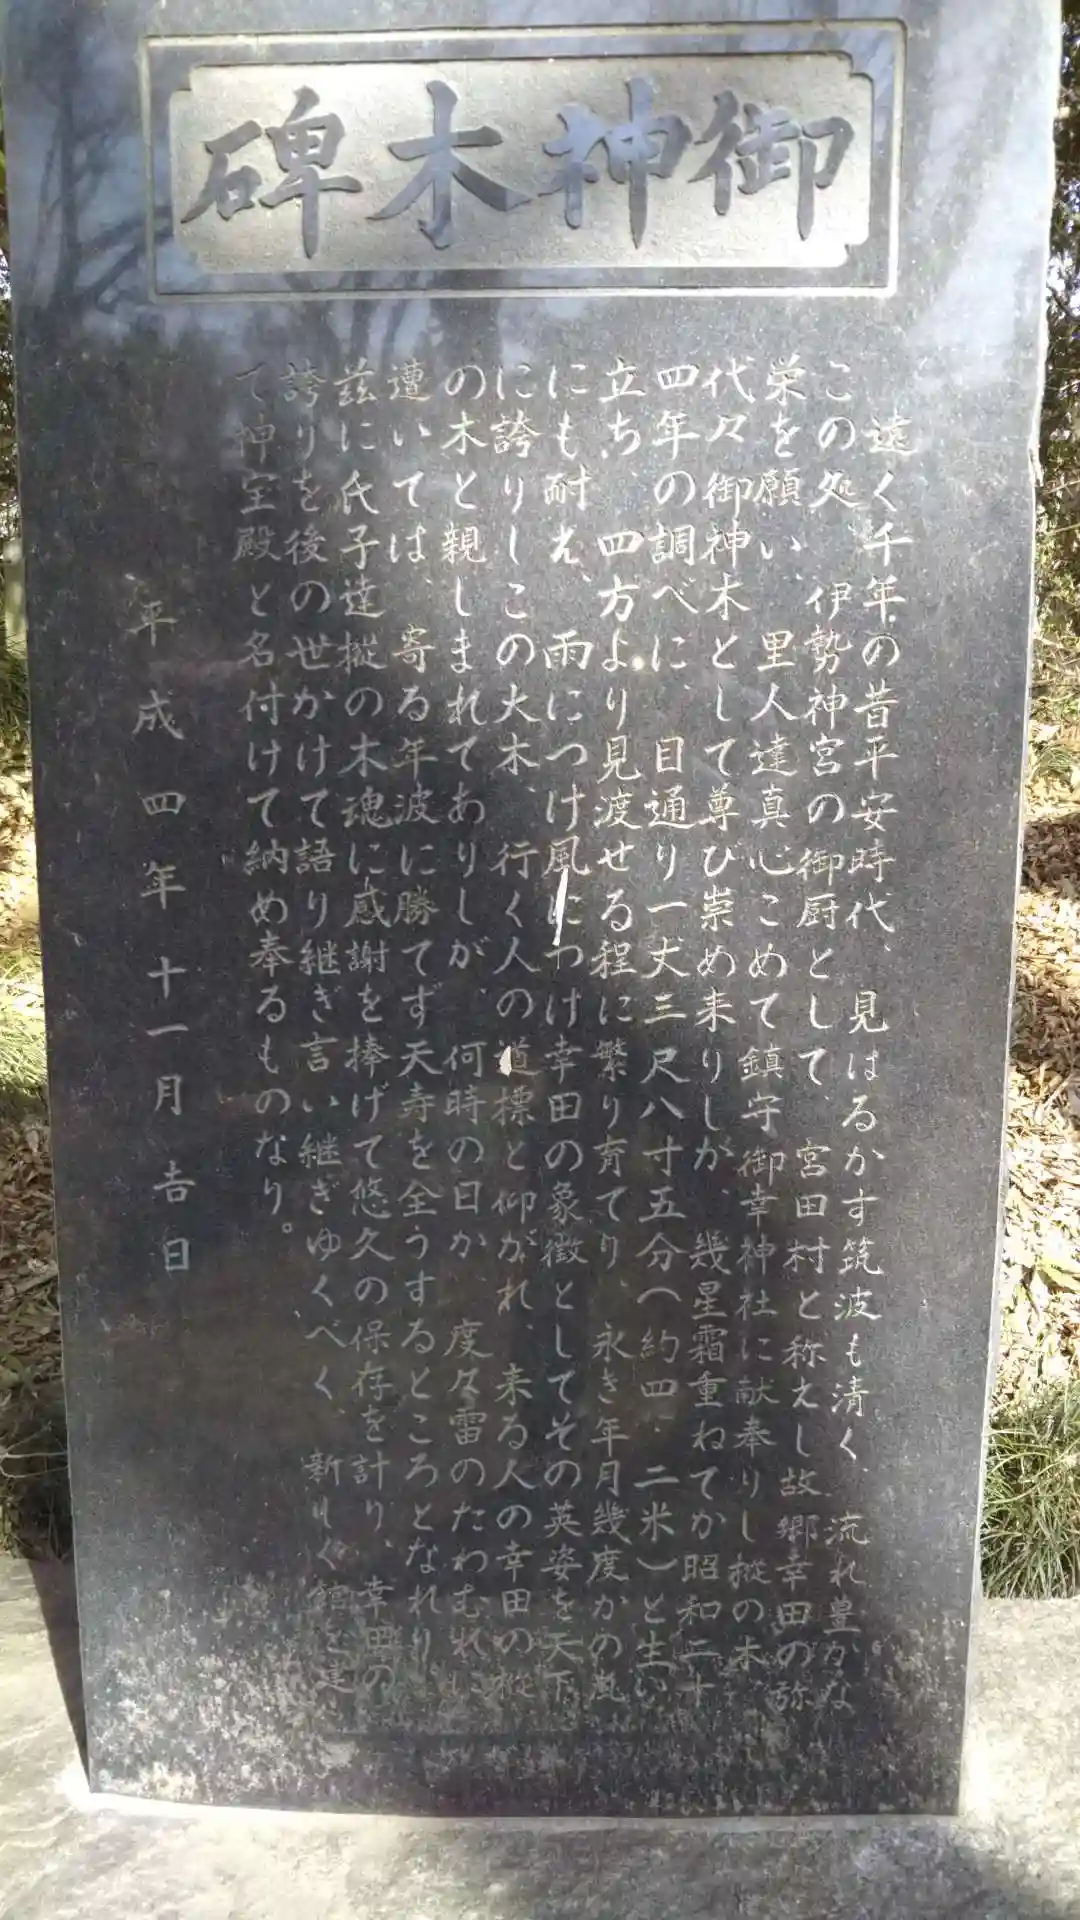 御神木碑
遠く千年の昔平安時代、見はるかす筑波も清く、流れ豊かな
この処、伊勢神宮の御厨として、宮田村と称えし故郷幸田の弥
栄を願い、里人達真心こめて鎮守御幸神社に献奉りし樅の木、
代々御神木として尊び崇め来りしが、幾星霜重ねてか昭和二十
四年の調べに、目通り一丈三尺八寸五分へ約四.二米)と生い
立ち、四方より見渡せる程に繁り育てり、永き年月幾度かの嵐
にも耐え、雨につけ風につけ幸田の象徴としてその英姿を天下
に誇りしこの大木、行く人の道標と仰がれ、来る人の幸田の樅
の木と親しまれてありしが、何時の日か、度々雷のたわむれに
遭いては、寄る年波に勝てず天寿を全うするところとなれり、
茲に氏子達樅の木魂に感謝を捧げて悠久の保存を計り、幸田の
誇りを後の世かけて語り継ぎ言い継ぎゆくべく、新しく館を建
て神宝殿と名付けて納め奉るものなり。
平成四年十一月吉日